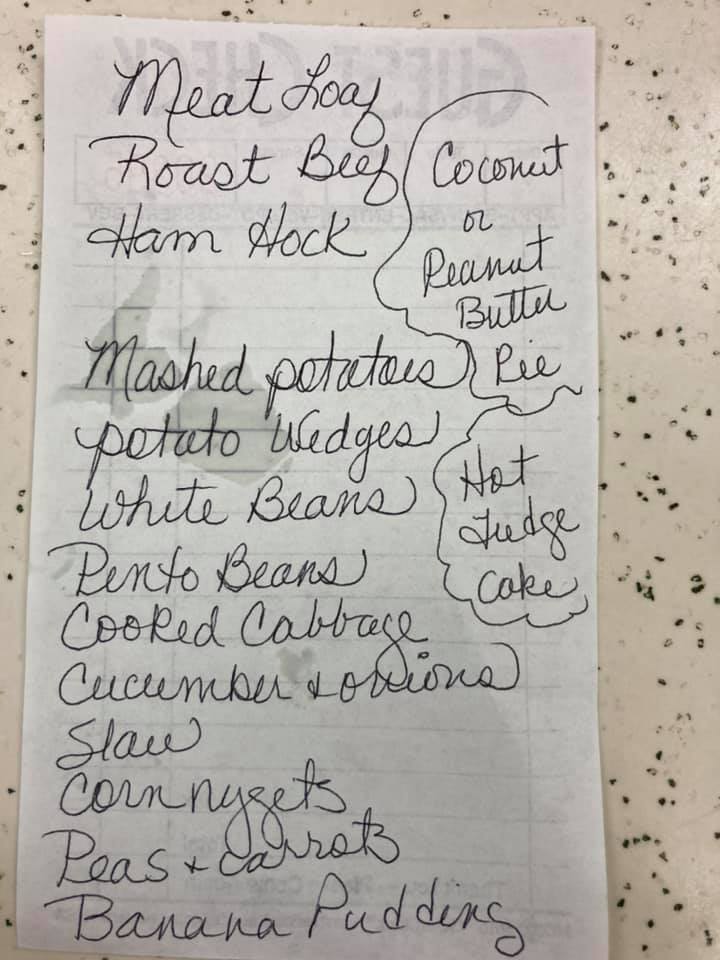 Meat Loaf
Roast Beef
Ham Hock
Coconut
or
Peanut
Butter
Pie
Mashed potatoes
potato Wedges
White Beans
Pento Beans
Cooked Cabbage
Cucumber & onions
Slaw
Corn nuggets
Peas & carrots
Banana Pudding
Hot
Fudge
Cake
GUEST CHECK